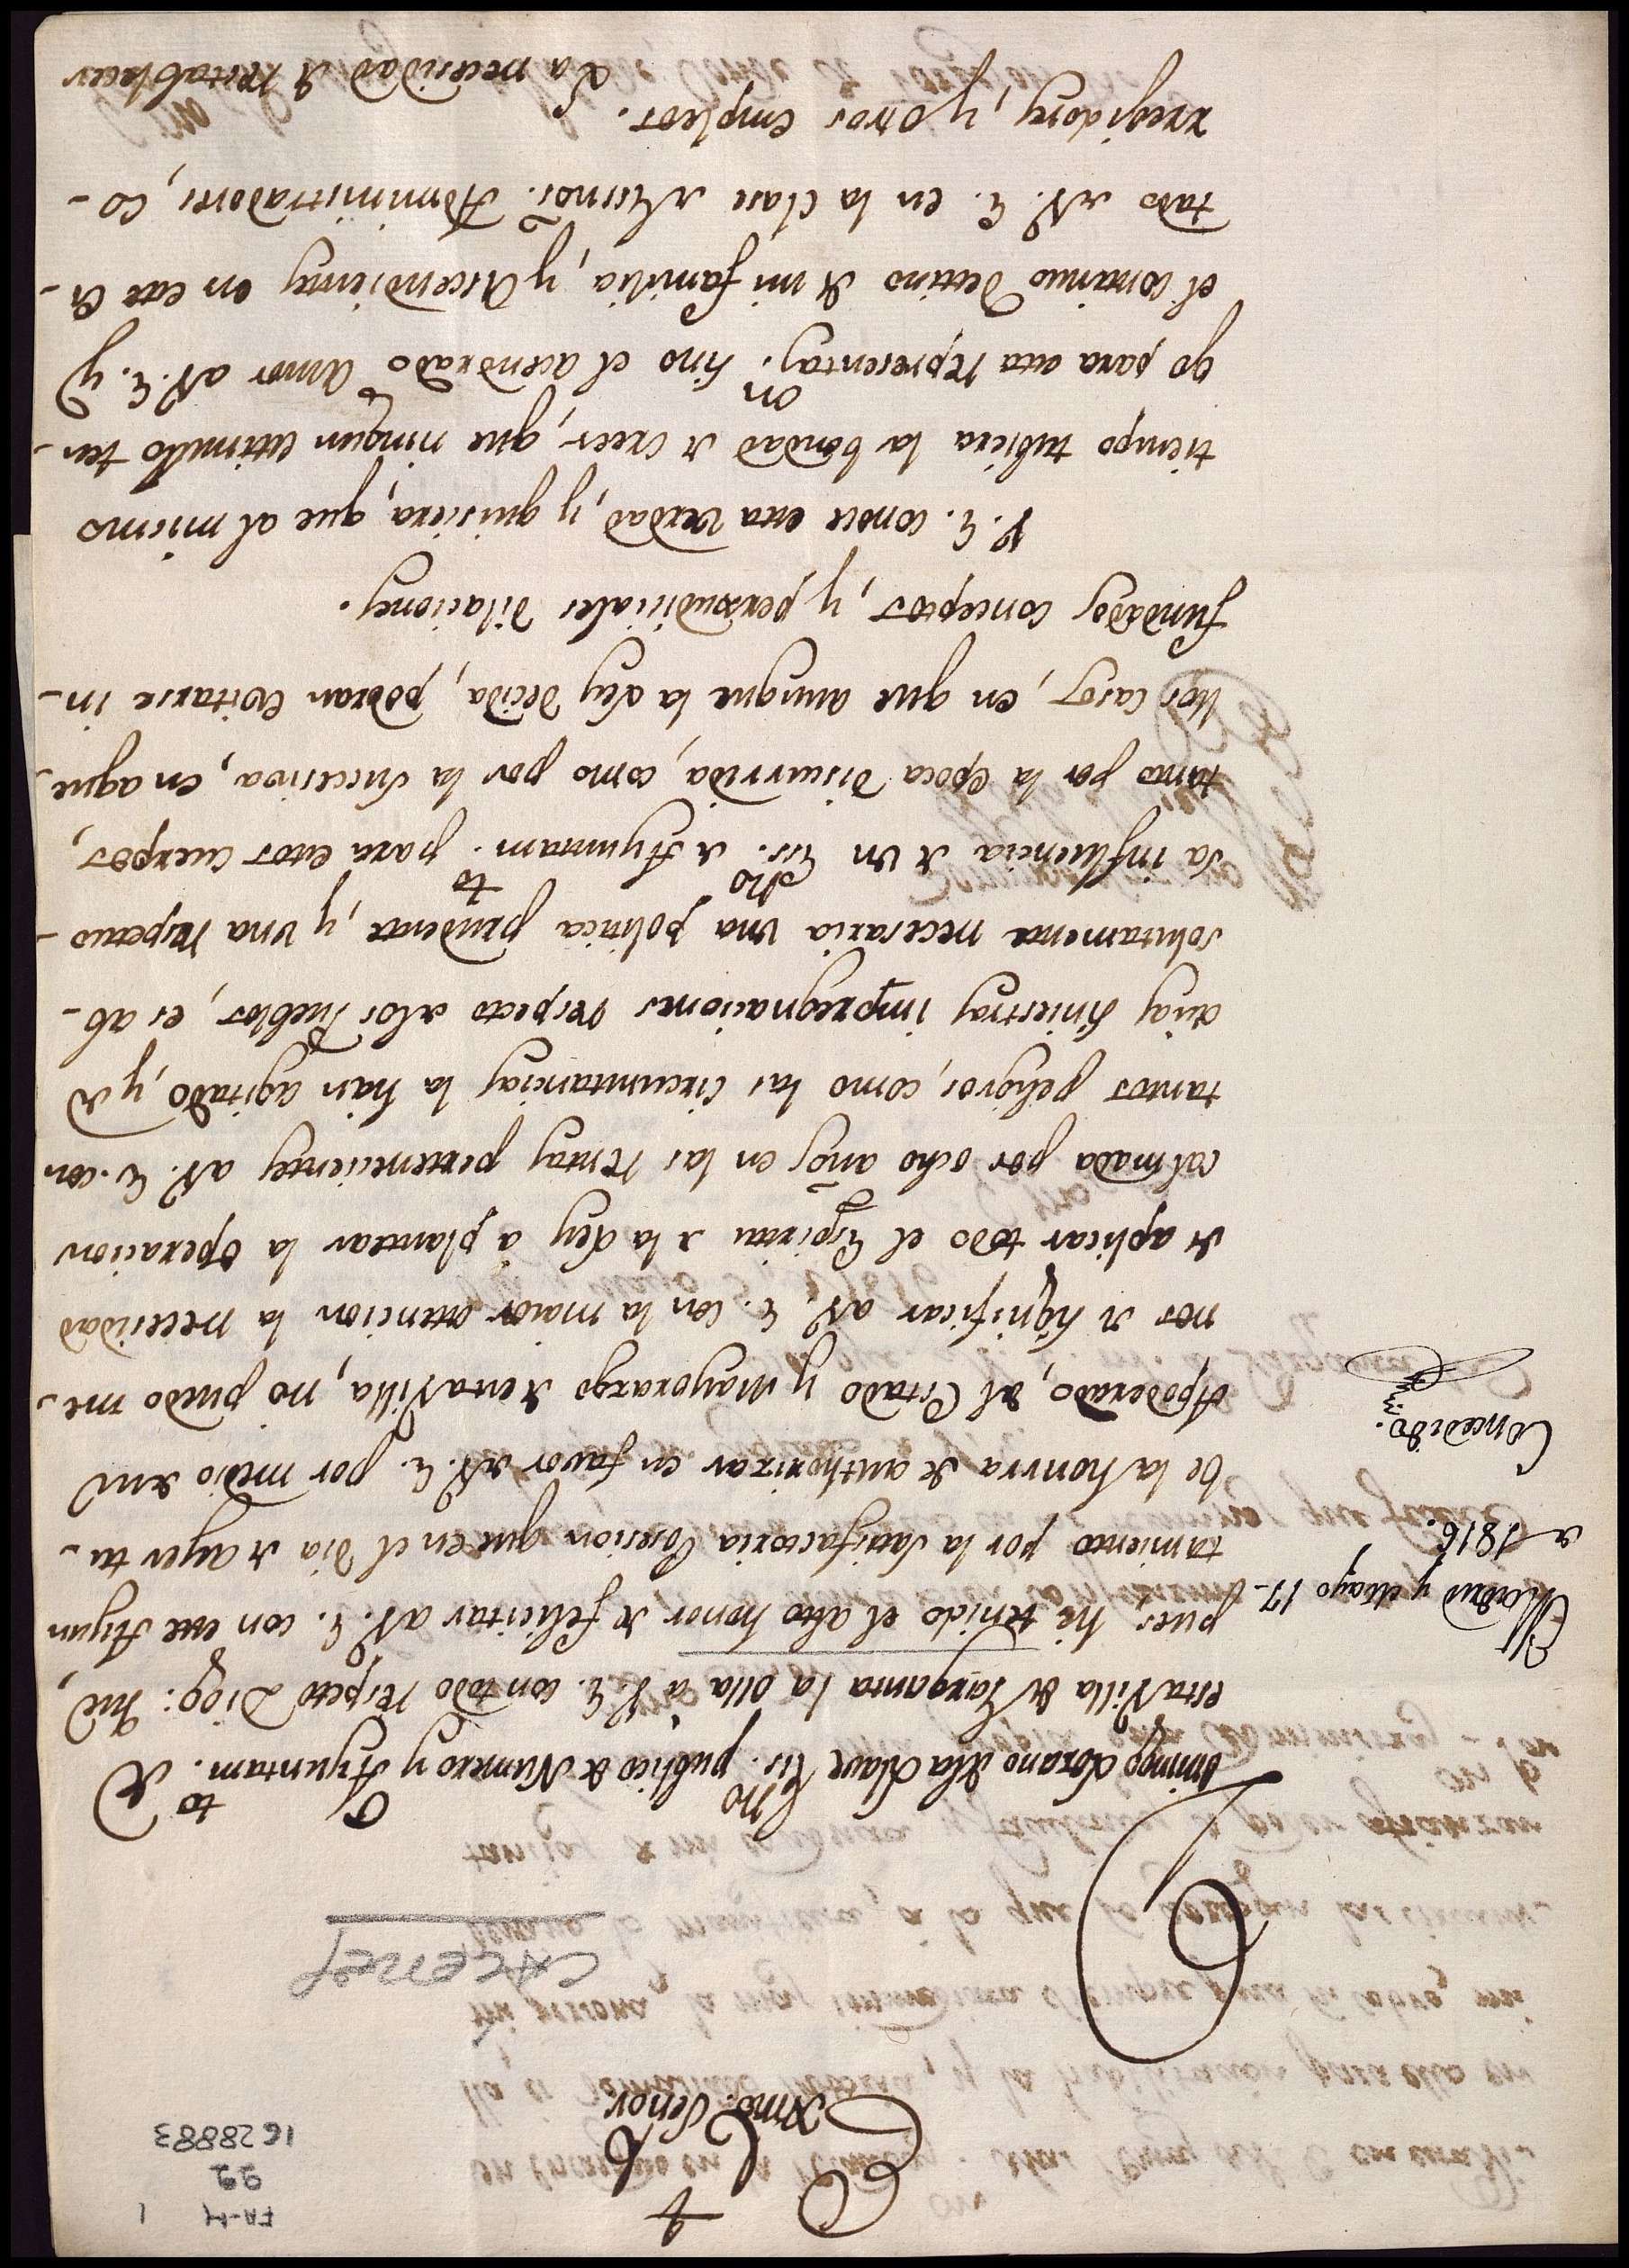 FA-M 1
99
1628883
Exmô. Señor
CACERES
Domingo Lozano de la Llave Es.no publico de Numero y Ayuntam.to de
esta Villa de Garganta la Olla à V. E. con todo respeto Digo: Que,
pues hè tenido el alto honor de felicitar a V. E. con este Ayun
tamiento por la satisfactoria Posesion que en el dia de ayer tu-
be la honrra de authorizar en favor de V. E. por medio de su
Apoderado, del Estado y Mayorazgo de esta Villa, no puedo me-
nos de significar a V. E. con la maior atencion la necesidad
de aplicar todo el Espiritu de la Ley à plantear la operacion
calmada por ocho años en las rentas pertenecientes a V. E. con
tantos peligros, como las circunstancias la hàn agitado, y de
cuias siniestras impregnaciones respecto de los Pueblos, es ab-
solutamente necesaria una politica prudente, y una respetuo-
sa influencia de un Es.no de Ayuntam.to para estos cuerpos,
tanto por la epoca discurrida, como por la succesiva, en aque-
llos casos, en que aunque la Ley decida, podran evitarse in-
fundados conceptos, y perxudiciales dilaciones.
V. E. conoce esta verdad, y quisiera, que al mismo
tiempo tubiera la bondad de creer, que ningun estimulo ten-
go para esta representaz.on sino el acendrado amor a V. E. y
el continuo destino de mi familia, y Ascendientes en este Es-
tado de V. E. en la clase de Esc̃nos. Administradores, Co-
rregidores, y otros empleos.
La necesidad de restablecer
Madrid y Mayo 17-
de 1816.
Concedido.